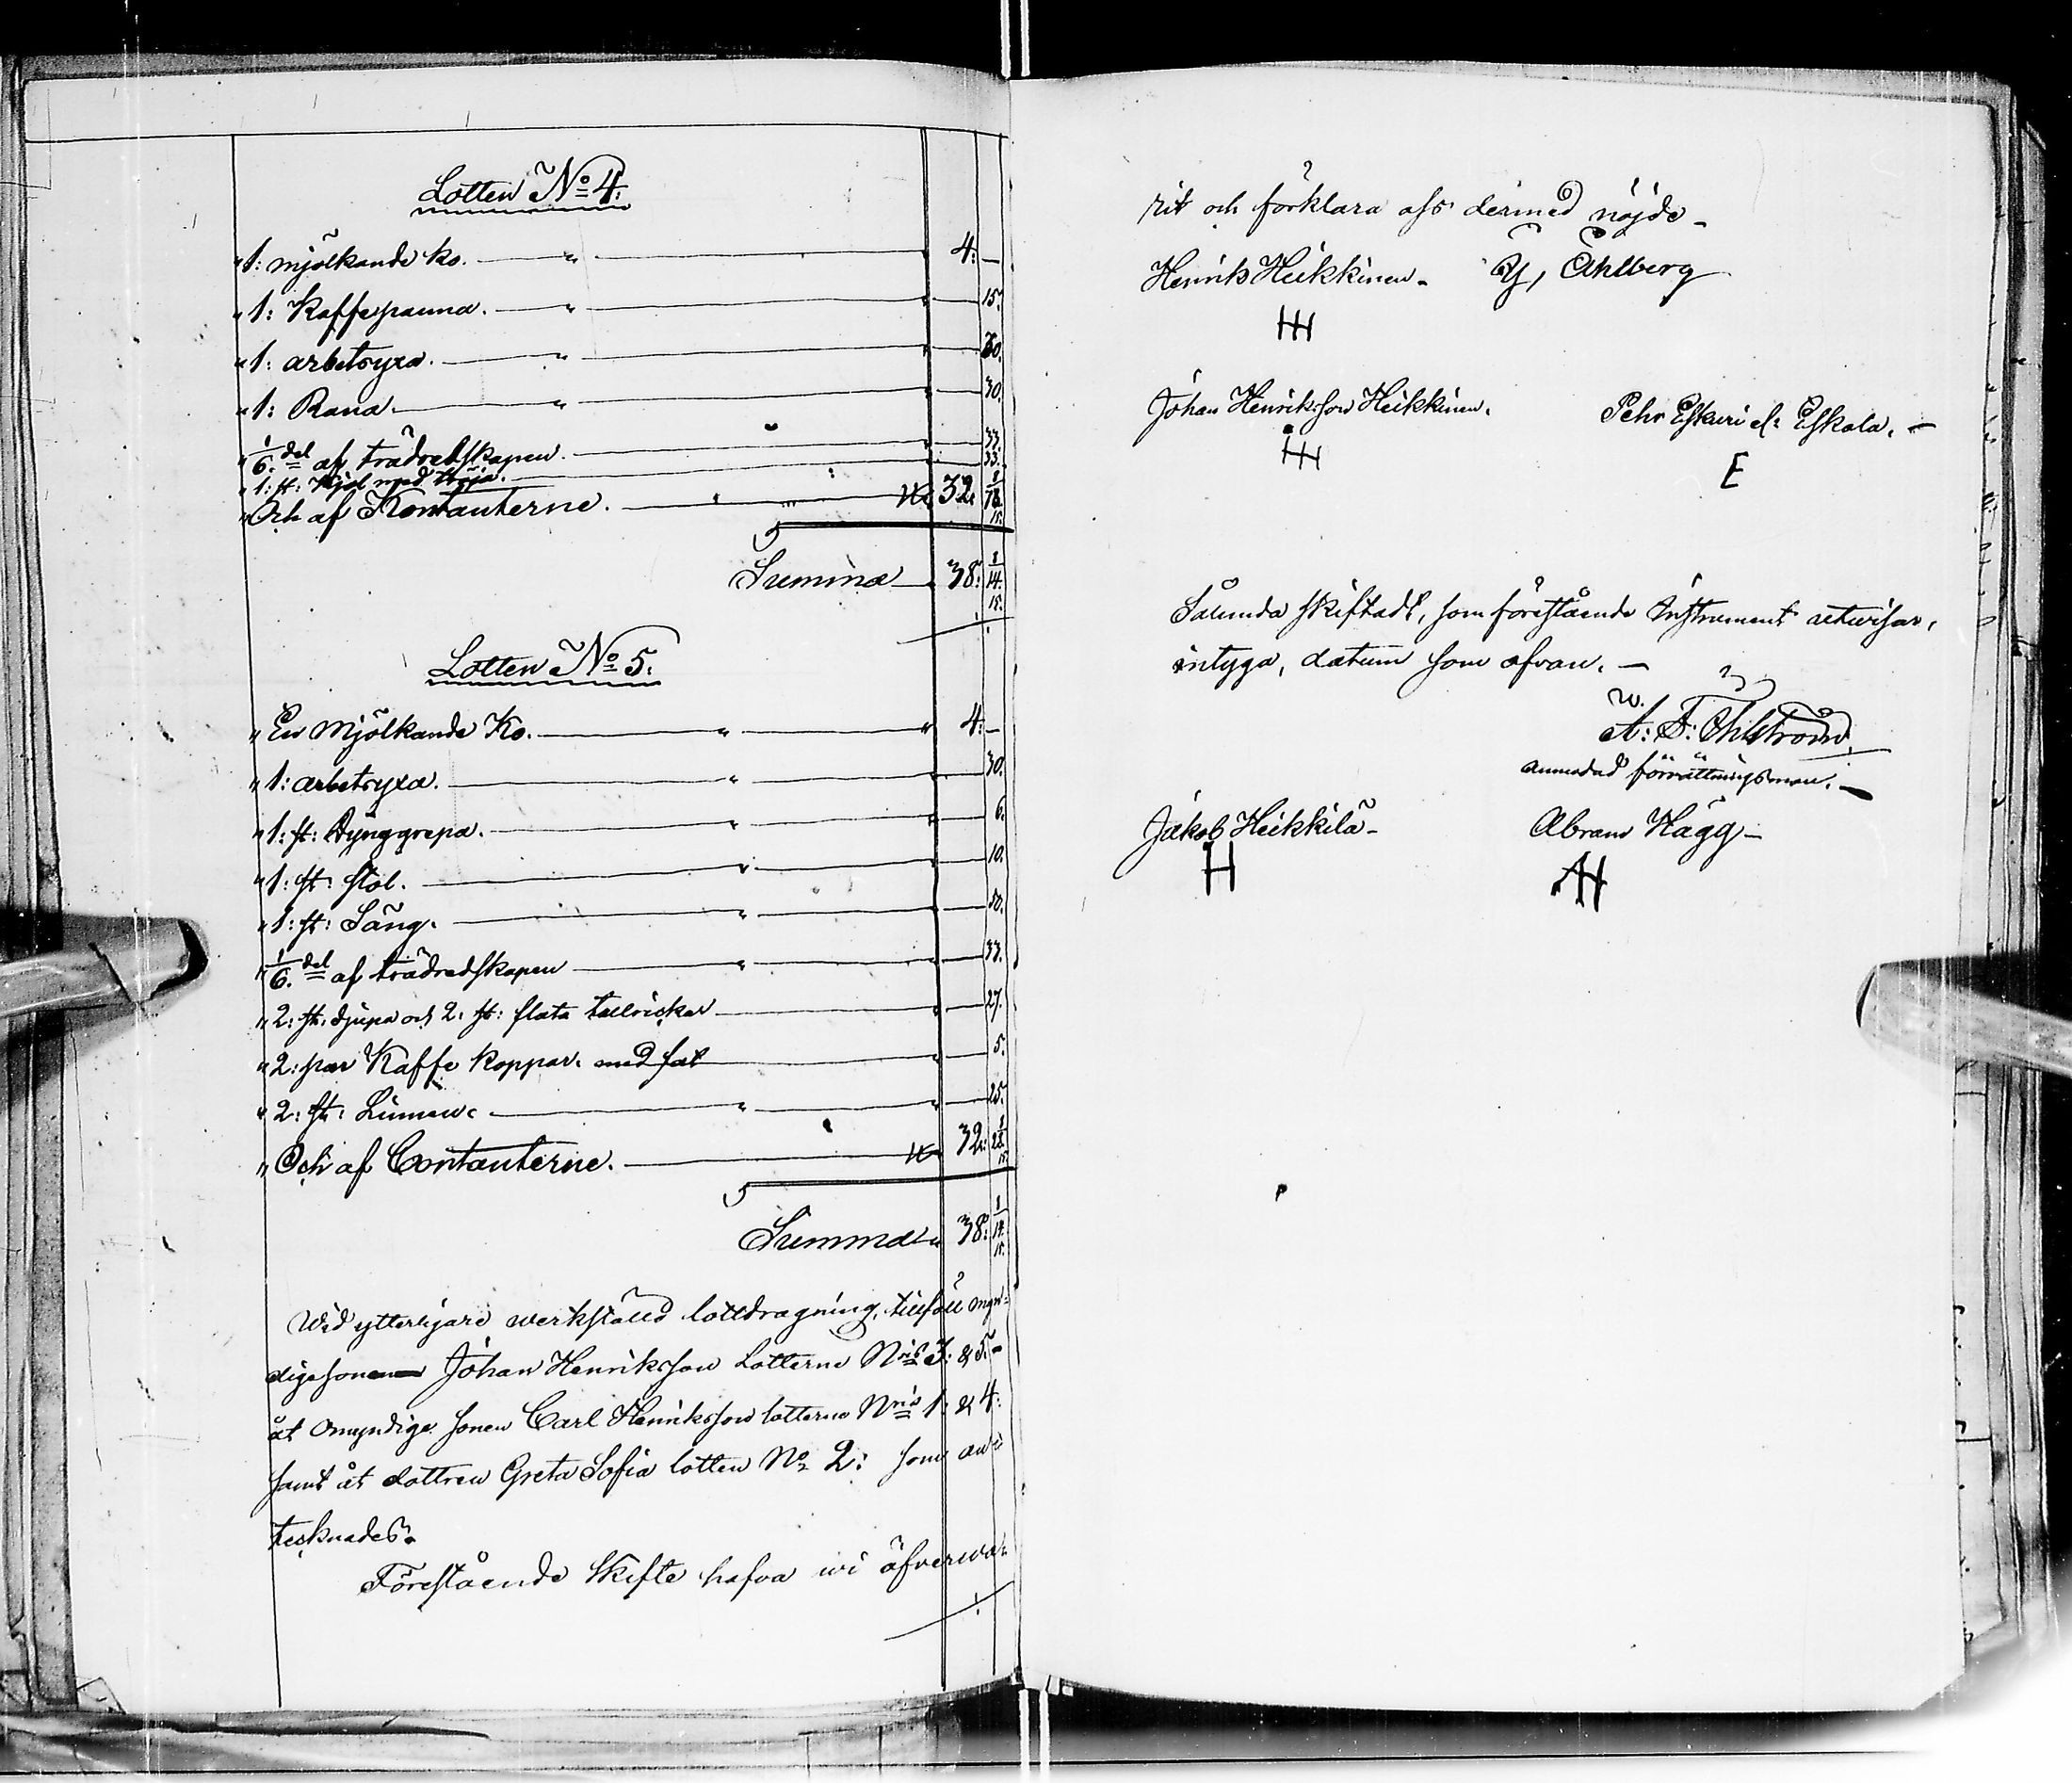 Lotten No 4.
" 1: mjölkande ko. — " — 4: —
" 1: Kaffepanna. — " — " — 15.
" 1: arbetsyxa. — " — " — 30.
" 1: Rana. — " — " — 30.
" 1/6 del af trädredskapen. — " — 33.
" 1: st: Kjol med tröja. — 33.
" Och af Kontanterne. — " — 32.
Summa — 38: 14 1/15
Lotten No 5.
" En Mjölkande Ko. — " — " 4: —
" 1: arbetsyxa. — " — " — 30.
" 1: st: Dynggrepa. — " — " — 6.
" 1: st: stol. — " — " — 10.
" 1: st: Säng. — " — " — 50.
" 1/6 del af trädredskapen — " — " — 33.
" 2: st: djupa och 2: st: flata tallrickar — " — 27.
" 2: par Kaffe koppar. med fat — " — 5.
" 2: st: Linnen. — " — " — 25.
" Och af Contanterne. — 32: 28
Summa " 38: 14 1/15
Wid ytterligare werkställd lottdragning, tillföll myn-
dige sonen Johan Henriksson Lotterne Nris 3: & 5. -
åt omyndige sonen Carl Henriksson lotterne Nris 1: & 4:
samt åt dottren Greta Sofia lotten No 2: som an-
tecknades.
Förestående Skifte hafva wi öfverwa-
rit och förklara oss dermed nöjde -
Henrik Heikkinen - Y, Åhlberg
HH
Johan Henriksson Heikkinen. Pehr Eskuri el: Eskola. -
HH E
Sålunda skiftadt, som förestående Instrument utwisar,
intyga, datum som ofvan. -
w.
A: F: Öhlström.
anmodad förrättningsman. -
Jakob Heikkilä - Abram Hägg -
H AH